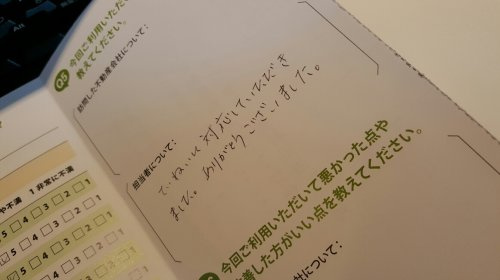 Q5
今回ご利用いただい
教えてください。
訪問した不動産会社について：
担当者について：
ていねいに対応していただき
ました。ありがとうございました。
今回ご利用いただいて悪かった点や
善した方がいい点を教えてください。
社について：
や不満 1 非常に不満
5 4 3 2 1
5 4 3 2 1
5 4 3 2 1
4 3 2 1